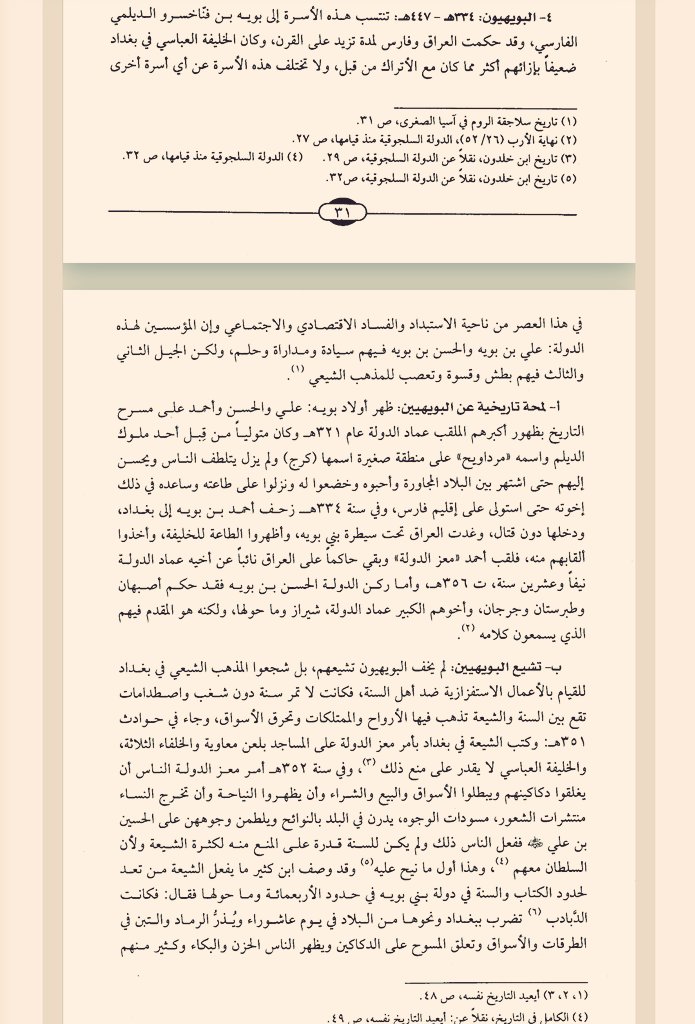 ٤- البويهيون: ٣٣٤هـ - ٤٤٧هـ: تنتسب هذه الأسرة إلى بويه بن فنّاخسرو الديلمي
الفارسي، وقد حكمت العراق وفارس لمدة تزيد على القرن، وكان الخليفة العباسي في بغداد
ضعيفاً بإزائهم أكثر مما كان مع الأتراك من قبل، ولا تختلف هذه الأسرة عن أي أسرة أخرى
(١) تاريخ سلاجقة الروم في آسيا الصغرى، ص ٣١.
(٢) نهاية الأرب (٢٦/ ٥٢)، الدولة السلجوقية منذ قيامها، ص ٢٧.
(٣) تاريخ ابن خلدون، نقلاً عن الدولة السلجوقية، ص ٢٩. (٤) الدولة السلجوقية منذ قيامها، ص ٣٢.
(٥) تاريخ ابن خلدون، نقلاً عن الدولة السلجوقية، ص٣٢.
٣١
في هذا العصر من ناحية الاستبداد والفساد الاقتصادي والاجتماعي وإن المؤسسين لهذه
الدولة: علي بن بويه والحسن بن بويه فيهم سيادة ومداراة وحلم، ولكن الجيل الثاني
والثالث فيهم بطش وقسوة وتعصب للمذهب الشيعي (١).
أ- لمحة تاريخية عن البويهيين: ظهر أولاد بويه: علي والحسن وأحمد على مسرح
التاريخ بظهور أكبرهم الملقب عماد الدولة عام ٣٢١هـ وكان متولياً من قِبل أحد ملوك
الديلم واسمه «مرداويح» على منطقة صغيرة اسمها (كرج) ولم يزل يتلطف الناس ويحسن
إليهم حتى اشتهر بين البلاد المجاورة وأحبوه وخضعوا له ونزلوا على طاعته وساعده في ذلك
إخوته حتى استولى على إقليم فارس، وفي سنة ٣٣٤هـ زحف أحمد بن بويه إلى بغداد،
ودخلها دون قتال، وغدت العراق تحت سيطرة بني بويه، وأظهروا الطاعة للخليفة، وأخذوا
ألقابهم منه، فلقب أحمد «معز الدولة» وبقي حاكماً على العراق نائباً عن أخيه عماد الدولة
نيفاً وعشرين سنة، ت ٣٥٦هـ، وأما ركن الدولة الحسن بن بويه فقد حكم أصبهان
وطبرستان وجرجان، وأخوهم الكبير عماد الدولة، شيراز وما حولها، ولكنه هو المقدم فيهم
الذي يسمعون كلامه (٢).
ب- تشيع البويهيين: لم يخف البويهيون تشيعهم، بل شجعوا المذهب الشيعي في بغداد
للقيام بالأعمال الاستفزازية ضد أهل السنة، فكانت لا تمر سنة دون شغب واصطدامات
تقع بين السنة والشيعة تذهب فيها الأرواح والممتلكات وتحرق الأسواق، وجاء في حوادث
٣٥١هـ: وكتب الشيعة في بغداد بأمر معز الدولة على المساجد بلعن معاوية والخلفاء الثلاثة،
والخليفة العباسي لا يقدر على منع ذلك (٣)، وفي سنة ٣٥٢هـ أمر معز الدولة الناس أن
يغلقوا دكاكينهم ويبطلوا الأسواق والبيع والشراء وأن يظهروا النياحة وأن تخرج النساء
منتشرات الشعور، مسودات الوجوه، يدرن في البلد بالنوائح ويلطمن وجوههن على الحسين
بن علي ﷺ ففعل الناس ذلك ولم يكن للسنة قدرة على المنع منه لكثرة الشيعة ولأن
السلطان معهم (٤)، وهذا أول ما نيح عليه(٥) وقد وصف ابن كثير ما يفعل الشيعة من تعد
لحدود الكتاب والسنة في دولة بني بويه في حدود الأربعمائة وما حولها فقال: فكانت
الدَّبادب (٦) تضرب ببغداد ونحوها من البلاد في يوم عاشوراء ويُذرُّ الرماد والتبن في
الطرقات والأسواق وتعلق المسوح على الدكاكين ويظهر الناس الحزن والبكاء وكثير منهم
(١، ٢، ٣) أيعيد التاريخ نفسه، ص ٤٨.
(٤) الكامل في التاريخ، نقلاً عن: أيعيد التاريخ نفسه، ص ٤٩.